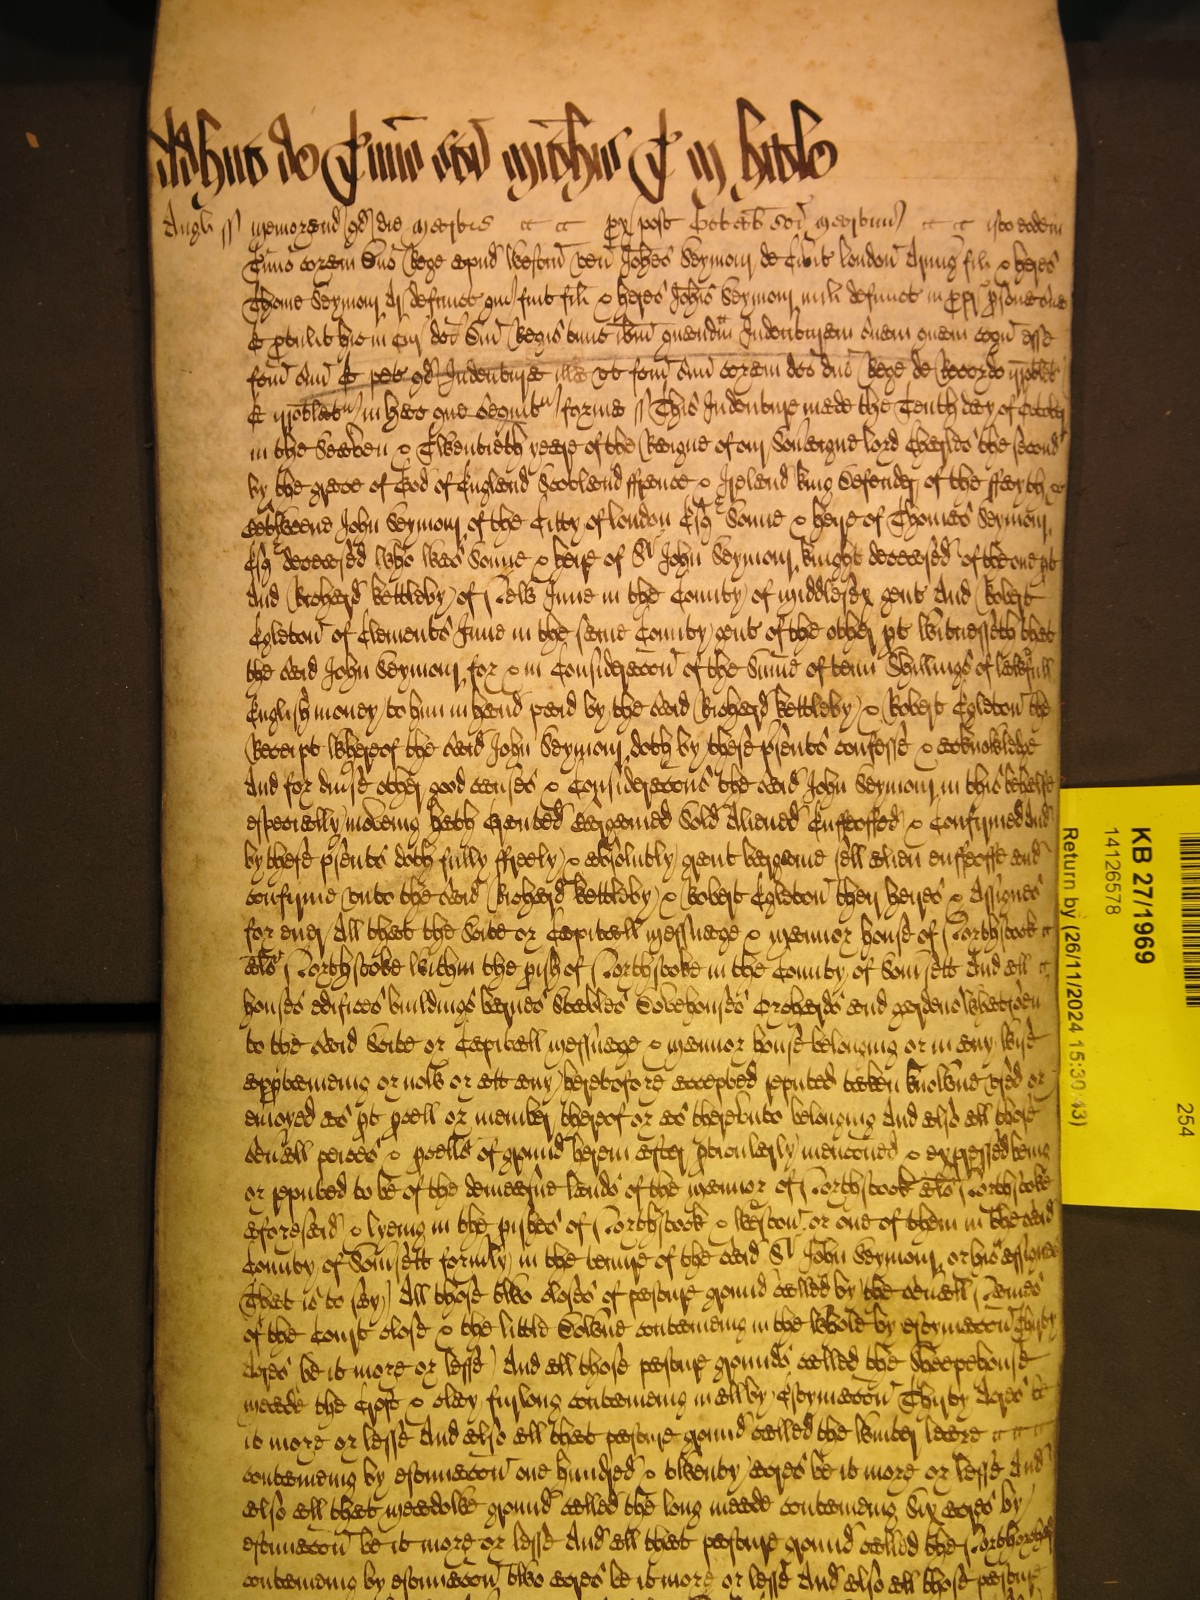 Adhuc de Termino sci Michis Et in hitlo
Angl ss Memorand qd die Mercurii px post Octab sci Martini isto eodem
Timino coram Dno Rege apud Westm ven Johes Seymour de Civit London Armig fili & heres
Thome Seymour Ar defunct qui fuit fili & heres Johis Seymour mili defunct in ppr psona sua
Et ptulit hic in Cur dci Dni Regis tunc ibm quandam Indenturam suam quam cogn esse
fcm suu Et pet qd Indentura illa ut fcm suu coram dco dno Rege de Recordo irrotlet
Et irrotlat in hec que sequit forma ss This Indenture made the Tenth day of October
in the Seaven & Twentieth yeare of the Raigne of our Soveraigne lord Charles the second
by the grace of God of England Scotland ffrance & Ireland king Defender of the ffayth &c
Betweene John Seymour of the Citty of london Esq Sonne & heire of Thomas Seymour
Esq deceased who was Sonne & heire of Sr John Seymour knight deceased of the one pt
And Richard Kettleby of New Inne in the County of Middlesex gent And Robert
Egleton of Clements Inne in the same County gent of the other pt Witnesseth that
the said John Seymour for & in Consideracon of the Summe of tenn Shillings of lawfull
English money to him in hand paid by the said Richard Kettleby & Robert Egleton the
Receipt whereof the said John Seymour doth by these psents confesse & acknowledge
And for divse other good causes & Consideracons the said John Seymour in this behalfe
especially moveing hath Granted Bargained Sold Aliened Enffeoffed & Confirmed And
by these psents doth fully ffreely & absolutly grant bargaine sell alien enffeoffe and
confirme unto the said Richard Kettleby & Robert Egleton their heires & Assignes
for ever All that the Scite or Capitall messuage & mannor house of Northstook
als Northstoke within the pish of Northstoke in the County of Somsett And all
houses edifices buildings barnes Stables Dovehouses Orchards and gardens whatsoever
to the said Scite or Capitall messuage & mannor house belonging or in any wise
apptaineing or now or att any heretofore accepted reputed taken knowne used or
enioyed as pt pcell or member thereof or as thereunto belonging And also all those
sevall peices & pcells of ground herein after pticulerly menconed & expressed being
or reputed to be of the demeasne lands of the mannor of Northstook als Northstoke
aforesaid & lyeing in the pishes of Northstook & Weston or one of them in the said
County of Somsett formly in the tenure of the said Sr John Seymour or his assignes
That is to say All those two closes of pasture ground called by the sevall Names
of the Court close & the little Downe containeing in the whole by estymacon Thirty
Acres be it more or lesse And all those pasture grounds called the Sheepehouse
meade the Croft & Cley furlong containeing in all by Estymacon Thirty Acres be
it more or lesse And also all that pasture ground called the Winter leare
containeing by estimacon one hundred & twenty acres be it more or lesse And
also all that meadowe ground called the long meade containeing Six acres by
estimacon be it more or lesse And all that pasture ground called the
containeing by estimacon two acres be it more or lesse And also all those pasture
KB 27/1969
14126578
254
Return by (26/11/2024 15:30:43)